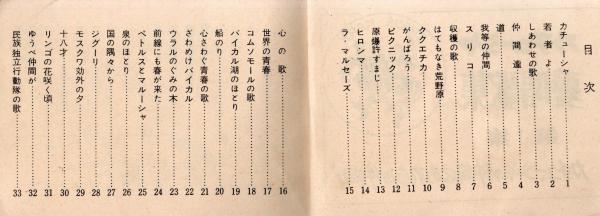 目次
カチューシャ……1
若者よ……2
しあわせの歌……3
仲間達……4
道……5
我等の仲間……6
スリコ……7
収穫の歌……8
はてもなき荒野原……9
ククエチカ……10
がんばろう……11
ピクニック……12
原爆許すまじ……13
ヒロシマ……14
ラ・マルセーズ……15
心の歌……16
世界の青春……17
コムソモールの歌……18
バイカル湖のほとり……19
船のり……20
心さわぐ青春の歌……21
ざわめけバイカル……22
ウラルのぐみの木……23
前線にも春が来た……24
ペトルスとマルーシャ……25
泉のほとり……26
国の隅々から……27
ジグーリ……28
モスクワ効外の夕……29
十八才……30
リンゴの花咲く頃……31
ゆうべ仲間が……32
民族独立行動隊の歌……33